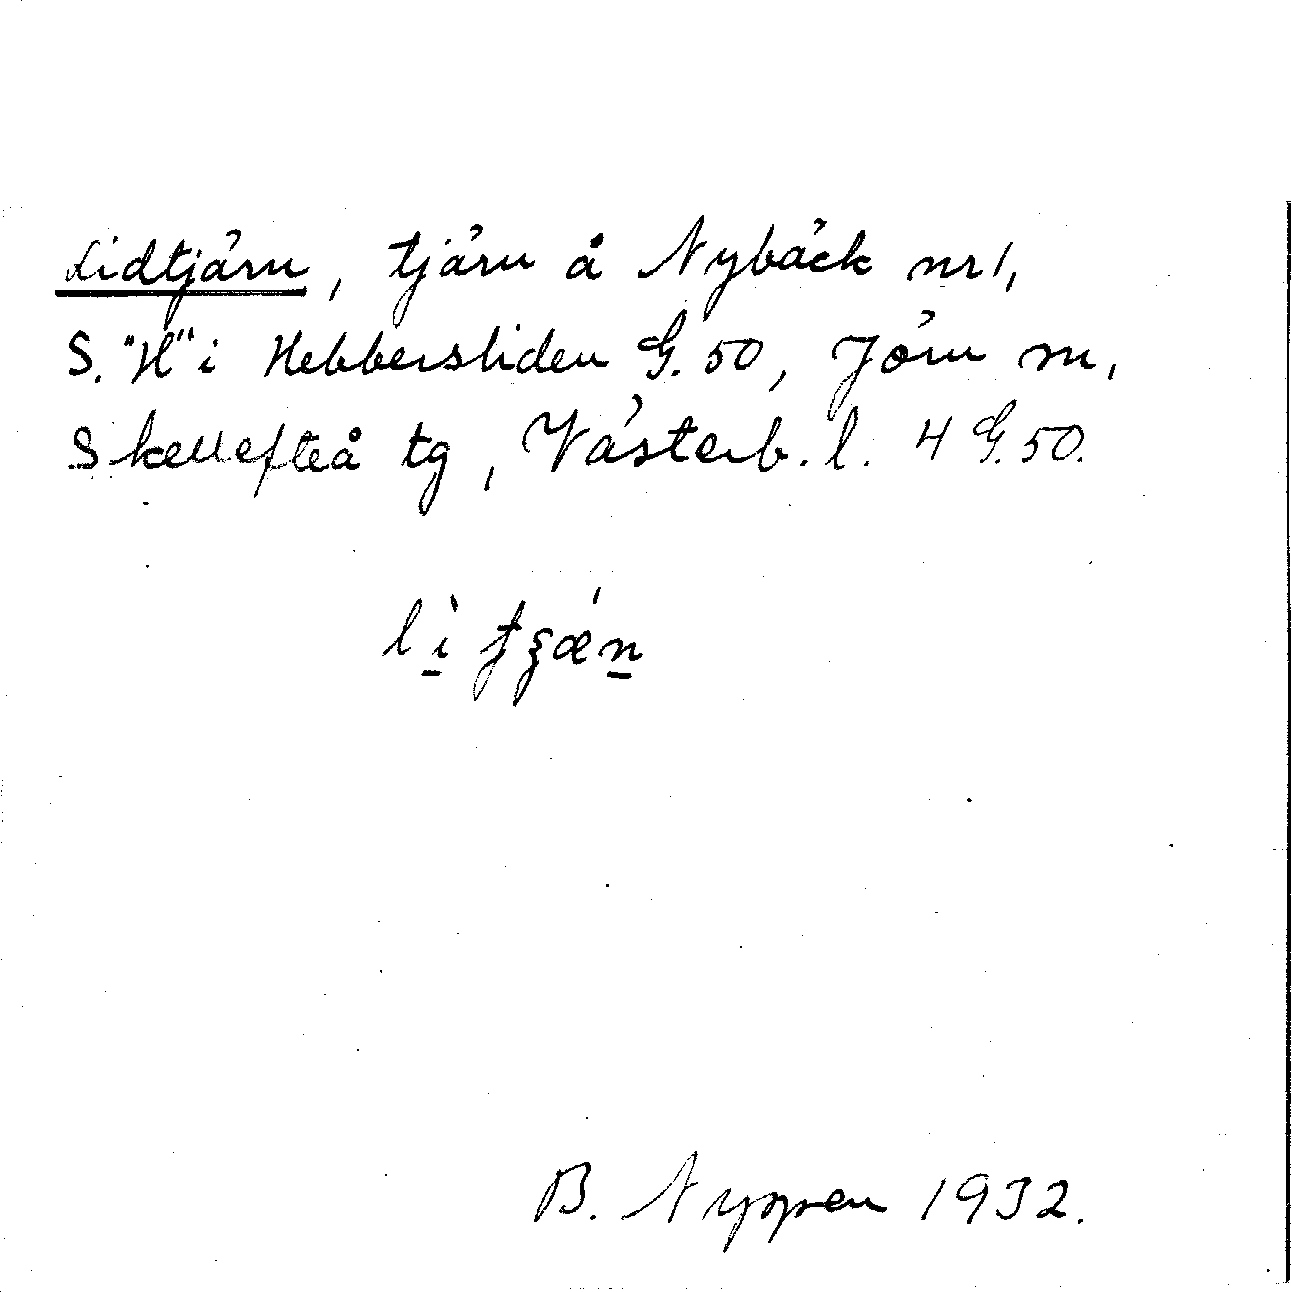 Lidtjärn, tjärn å Nybäck nr 1,
S. "H" i Hebbersliden G. 50, Jörn sn,
Skellefteå tg, Västerb. l. 4 G. 50.
B. Nyppen 1932.